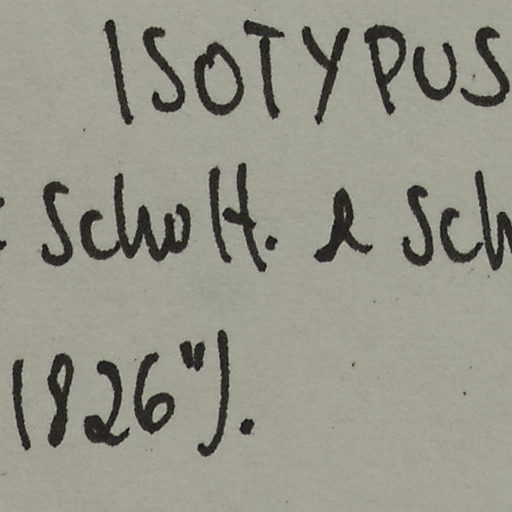 ISOTYPUS
Schott. e Sch
1826").